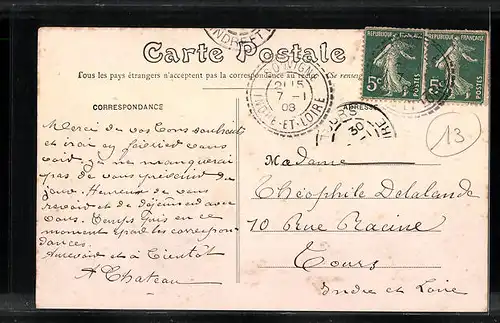 Carte Postale
Tous les pays étrangers n'acceptent pas la correspondance au recto. (Se renseigner
CORRESPONDANCE
ADRESSE
REPUBLIQUE FRANÇAISE
5c POSTES
REPUBLIQUE FRANÇAISE
5c POSTES
INDRE-ET-LOIRE
7 -1
08
13
Merci de vos bons souhaits
et irai en février vous
voir, je ne manquerai
pas de vous prévenir du
jour. Heureux de vous
revoir et de déjeuner avec
vous. Temps gris en ce
moment
dances.
Au revoir et à bientôt
A Chateau
Madame
Théophile Delalande
10 Rue Racine
Tours
Indre et Loire